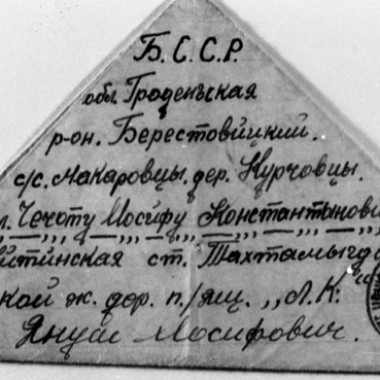 Б.С.С.Р.
обл Гроденьская
р-он. Берестовйцкий.
с/с. Макаровцы. дер. Курчовцы.
л. Чехоту Иосифу Константынови
йтинская ст. Тахтамыгда
кой ж. дор. п./ящ. „Л.К."
Януш Иосифович.